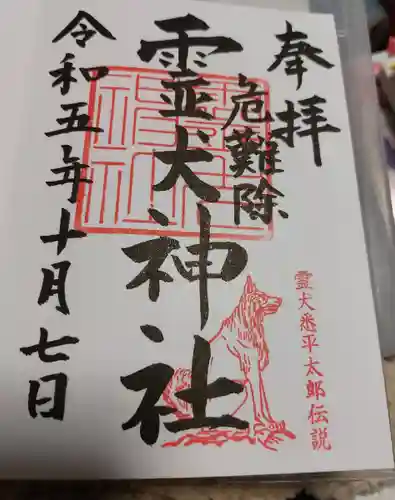 奉拝
危難除
霊犬神社
令和五年十月七日
霊犬悉平太郎伝説